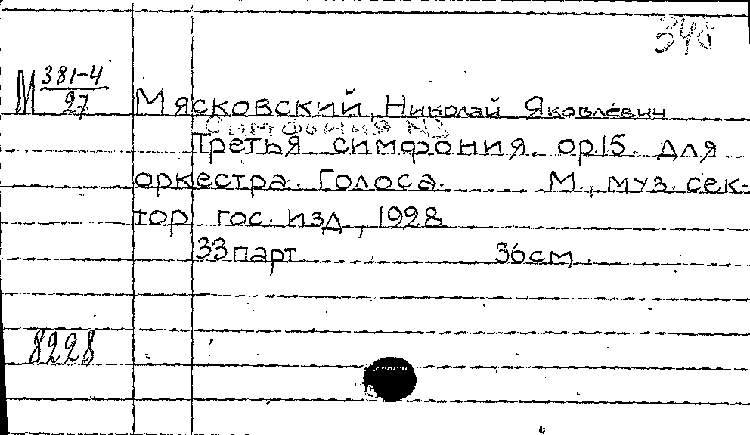 348
М 381-4
27
Мясковский, Николай Яковлевич
Симфония №3
Третья симфония. op.15. для
оркестра. Голоса. М., муз. сек-
тор гос. изд., 1928
33 парт. 36 см.
8228